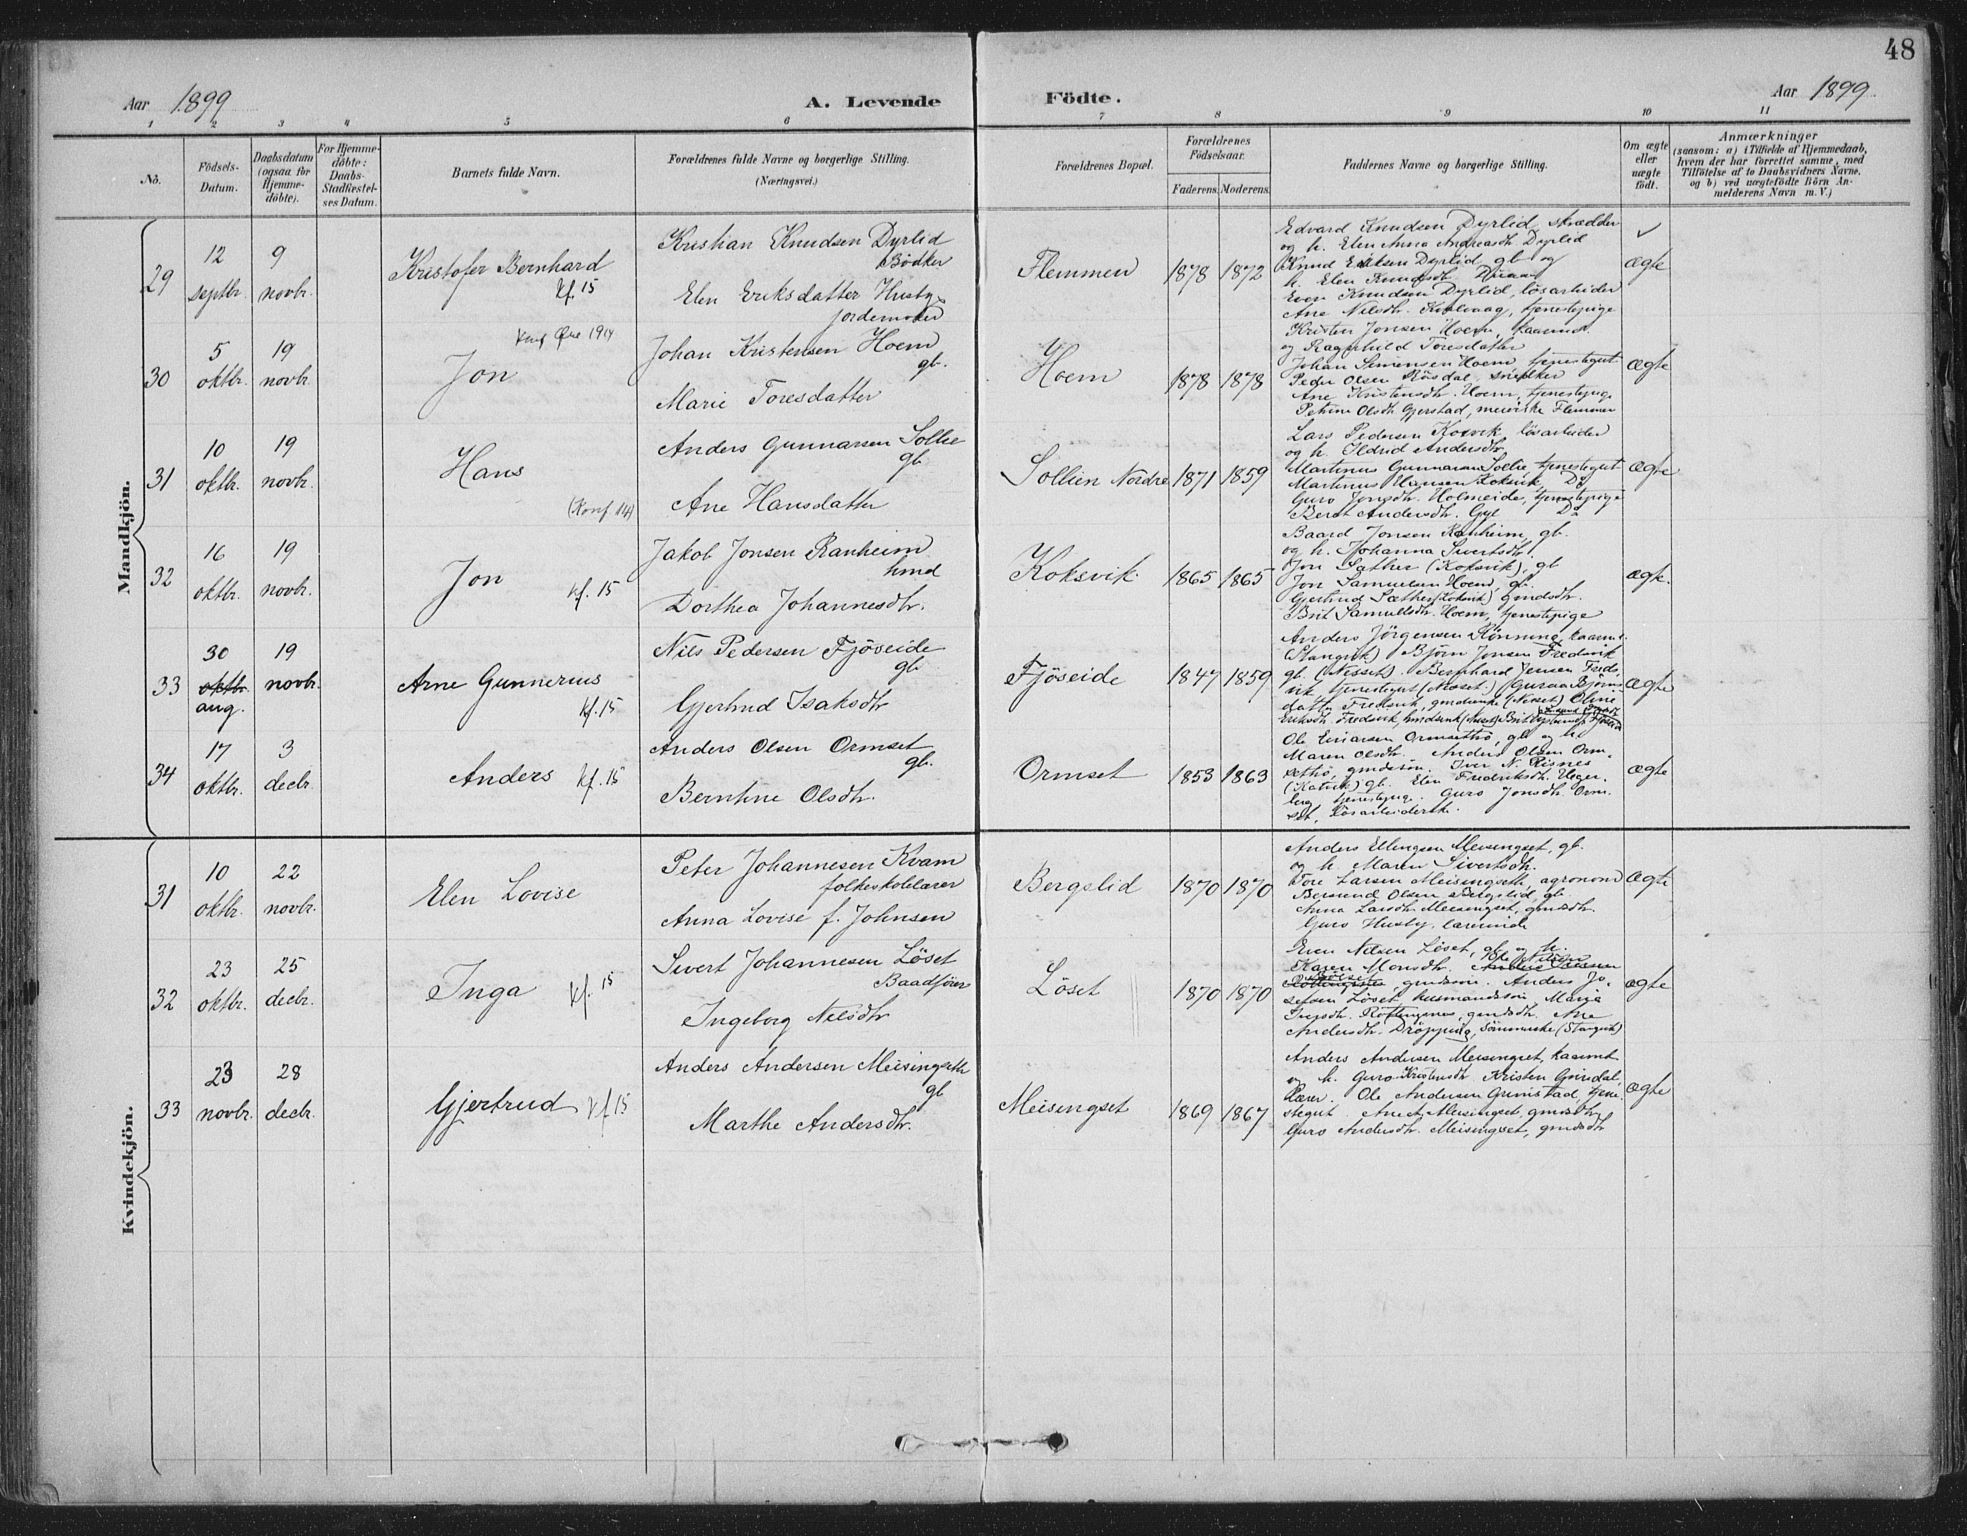 48
Aar 1899
A. Levende Födte.
Aar 1899
1 2 3 4 5 6 7 8 9 10 11
No.
Födsels-Datum.
Daabsdatum (ogsaa for Hjemme-döbte).
For Hjemme-döbte: Daabs-Stadfæstel-ses Datum.
Barnets fulde Navn.
Forældrenes fulde Navne og borgerlige Stilling.
(Næringsvei.)
Forældrenes Bopæl.
Forældrenes Födselsaar.
Faderens. Moderens.
Faddernes Navne og borgerlige Stilling.
Om ægte eller uægte födt.
Anmærkninger
(saasom: a) i Tilfælde af Hjemmedaab, hvem der har forrettet samme, med Tilföielse af to Daabsvidners Navne, og b) ved uægtefödte Börn An-melderens Navn m. V.)
Mandkjön.
29
12 septbr.
9 novbr.
Kristofer Bernhard
kf. 15
Kristian Knudsen Dyrlid
Bödker
Elen Eriksdatter Husby
jordemoder
Flemmen
1878 1872
Edvard Knudsen Dyrlid, skrædder
og h. Elen Anna Andreasdtr. Dyrlid
Knud Eriksen Dyrlid, gb. og
h. Elen Knudsdtr.
Even Knudsen Dyrlid, lösarbeider
Ane Nilsdtr. Kvalvaag, tjenestepige
ægte
30
5 oktbr.
19 novbr.
Jon
Konf Öre 1914
Johan Kristensen Hoem
gb.
Marie Toresdatter
Hoem
1878 1878
Kristen Jonsen Hoem, kaarmd.
og Ragnhild Toresdatter
Johan Simensen Hoem, tjenestegut
Peder Olsen Rösdal, snedker
Ane Kristensdtr. Hoem, tjenestepige
Petrine Olsdtr. Gjerstad, meierske Flemmen
ægte
31
10 oktbr.
19 novbr.
Hans
(Konf 14)
Anders Gunnarsen Sollie
gb.
Ane Hansdatter
Sollien Nordre
1871 1859
Lars Pedersen Koksvik lösarbeider
og h. Ildrid Andersdtr.
Martinus Gunnarsen Sollie, tjenestegut
Martinus Hansen Koksvik, Do
Guro Jonsdtr. Holmeide, tjenestepige
Berit Andersdtr. Gyl Do
ægte
32
16 oktbr.
19 novbr.
Jon
kf. 15
Jakob Jonsen Ranheim
hmd
Dorthea Johannesdtr.
Koksvik
1865 1865
Baard Jonsen Ranheim, gb.
og h. Johanna Sivertsdtr.
Jon Sæther (Koksvik), gb
Jon Samuelsen Hoem, gb.
Gjertrud Sæther (Koksvik), gmdsdtr.
Brit Samuelsdtr. Hoem, tjenestepige
ægte.
33
30 oktbr. aug.
19 novbr.
Arne Gunnerius
kf. 15
Nils Pedersen Fjöseide
gb
Gjertrud Isaksdtr
Fjöseide
1847 1859
Anders Jörgensen Rönning, kaarmd.
(Stangvik) Björn Jonsen Fredsvik
gb. (Nesset) Bernhard Jensen Freds-
vik, tjenestegut (Nesset) Guraa Björns-
datter Fredsvik, gmdenke (Nesset) Oline
Eriksdtr. Fredsvik,
ægte
34
17 oktbr.
3 decbr.
Anders
kf. 15
Anders Olsen Ormset
gb.
Berntine Olsdtr.
Ormset
1853 1863
Ole Einarsen Ormsethö, gb og h.
Maren Olsdtr. Anders Olsen Orm-
sethö, gmdssön. Iver N. Risnes
gb. Elen Fredriksdtr. Heger-
berg tjenestepig. Guro Jonsdtr. Orm-
set, lösarbeiderske.
ægte
Kvindekjön.
31
10 oktbr.
22 novbr.
Elen Lovise
Peter Johannesen Kvam
folkeskolelærer
Anna Lovise f. Johnsen
Bergslid
1870 1870
Anders Ellingsen Meisingset, gb.
og h. Maren Sivertsdtr.
Tore Larsen Meisingseth, agronom
Bersvend Olsen Bergslid, gb.
Anna Larsdtr. Meisingset, gmdsdtr.
Guro Husby, lærerinde
ægte
32
23 oktbr.
25 decbr.
Inga
kf. 15
Sivert Johannesen Löset
Baadförer
Ingeborg Nilsdtr
Löset
1870 1870
Even Nilsen Löset, gb og h.
Karen Monsdtr.
gmdssön. Anders Jo-
sefsen Löset husmandssön, Marie
gmdsdtr. Ane
Andersdtr. Dröpping, sömmerske (Stangvik)
ægte
33
23 novbr.
28 decbr.
Gjertrud
kf 15
Anders Andersen Meisingseth
gb
Marthe Andersdtr.
Meisingset
1869 1867
Anders Andersen Meisingset, kaarmd
og h. Guro Kristensdtr. Kristen Grindal,
lærer. Ole Andersen Grimstad, tjene-
stegut. Ane A. Meisingset, gmdsdtr
Guro Andersdtr. Meisingset, gmdsdtr
ægte